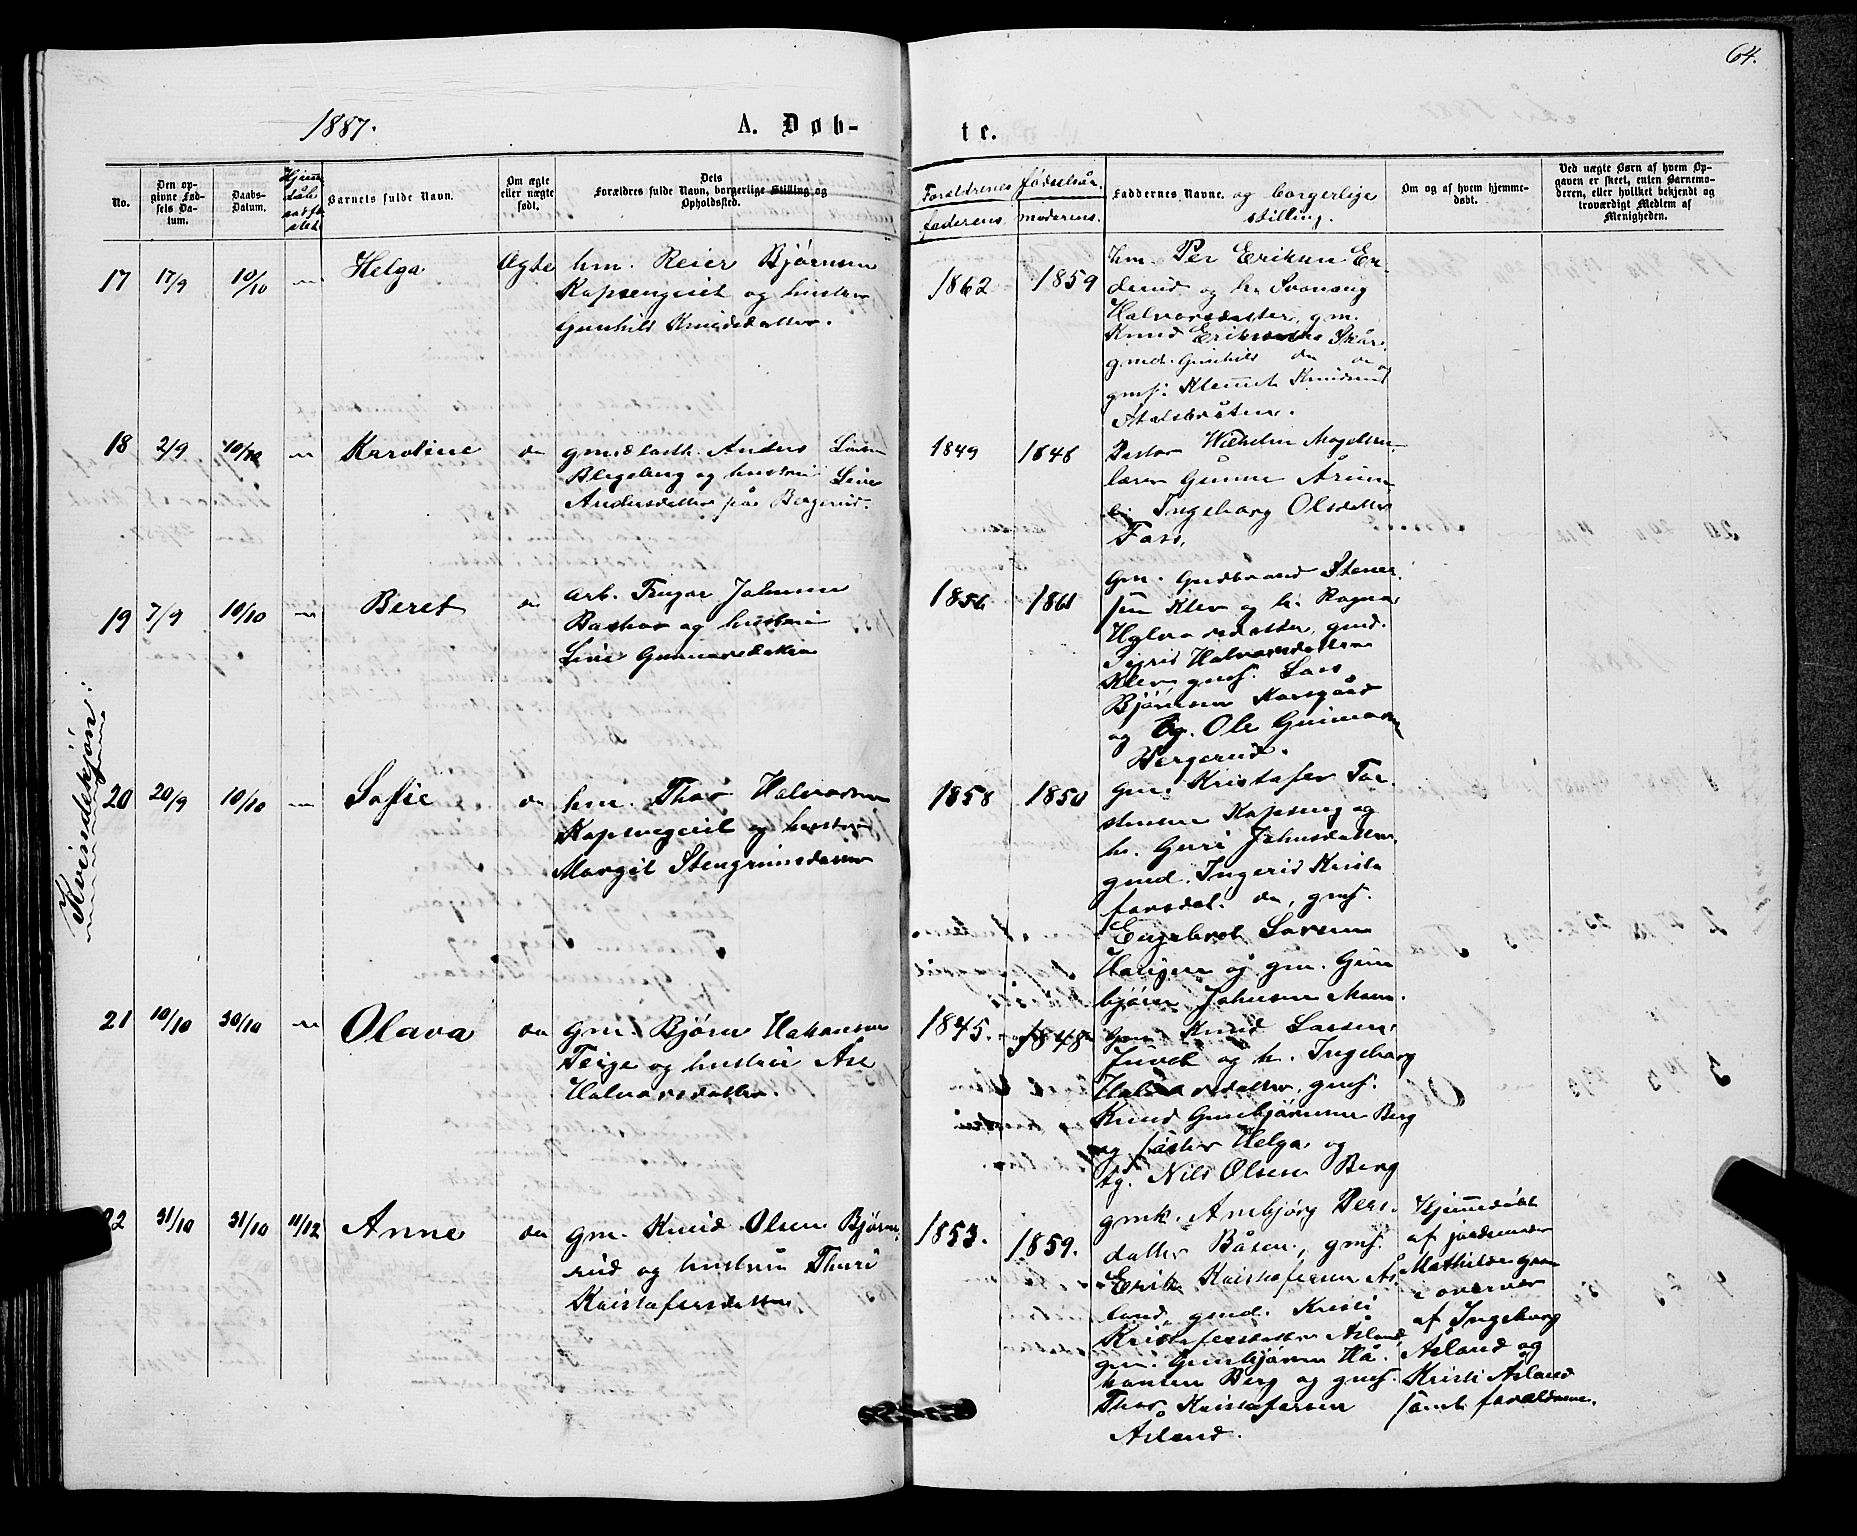 64.
1887.
A. Døb-
te.
No.
Den op-
givne Fød-
sels Da-
tum.
Daabs-
Datum.
Hjemme
dåb
stadfæ
stet
Barnets fulde Navn.
Om ægte
eller uægte
født.
Dets
Forældres fulde Navn, borgerlige Stilling og
Opholdssted.
Forældrenes fødselsår.
faderens
moderens.
Faddernes Navne. og borgerlige
stilling.
Om og af hvem hjemme-
døbt.
Ved uægte Børn af hvem Op-
gaven er skeet, enten Barnemo-
deren, eller hvilket bekjendt og
troværdigt Medlem af
Menigheden.
Kvindekjøn.
17 17/9 10/10 " Helga Ægte hm. Reier Bjørnsen
Kapsengeiet og hustru
Gunhild Knudsdatter.
1862 1859
hm. Per Eriksen En-
derud og h. Svanaug
Halvorsdatter, gm.
Knud Eriksen Skår,
gmd. Gunhild do og
gmf. Klemet Knudsen
Stalsbråten.
18 2/9 10/10 " Karoline do Anders Larsen
Blegeberg og hustru Live
Andersdatter på Bergerud.
1849 1848
Pastor Wilhelm Magelsen
lærer Gunne
Ingeborg Olsdatter
Foss.
19 7/9 10/10 " Beret do arb. Johnsen
og hustru
Live Gunnarsdatter
1856 1861
Gm. Gudbrand Stener-
sen Klev og h. Ragna
Halvorsdatter, gmd.
Sigrid Halvorsdatter
Klev, gmf. Lars
Bjørnsen
og tg. Ole Gunnarsen
Bergerud.
20 20/9 10/10 " Sofie do hm. Thor Halvorsen
Kapsengeiet og hustru
Margit Stengrimsdatter
1858 1850
Gm. Kristofer Tor-
stensen Kapseng og
h. Guri Johnsdatter
gmd. Ingerid Kristo
fersdat. do, gmf.
Engebret Larsen
Haugen og gm. Gun
bjørn Johnsen Moen.
21 10/10 30/10 " Olava do gm. Bjørn Hakonsen
Teige og hustru Åse
Halvorsdatter.
1845. 1848
Gm. Knud Larsen
Juvet og h. Ingeborg
Halvorsdatter, gmf.
Knud Gunbjørnsen Berg
og søster Helga og
tg. Nils Olsen Berg
22 31/10 31/10 11/12 Anne do gm. Knud Olsen Bjørne-
rud og hustru Thuri
Kristofersdatter
1853. 1859.
gmk. Anbjørg Pers-
datter Båsen, gmf.
Erik Kristofersen Ås-
land, gmd. Kristi
Kristofersdatter Åsland,
gm. Gunbjørn Hå-
konsen Berg og gmf.
Thor Kristofersen
Åsland.
Hjemmedøbt
af jordemor
Mathilde Gran
i overvær
af Ingeborg
Åsland og
Kristi Åsland
samt forældrene.